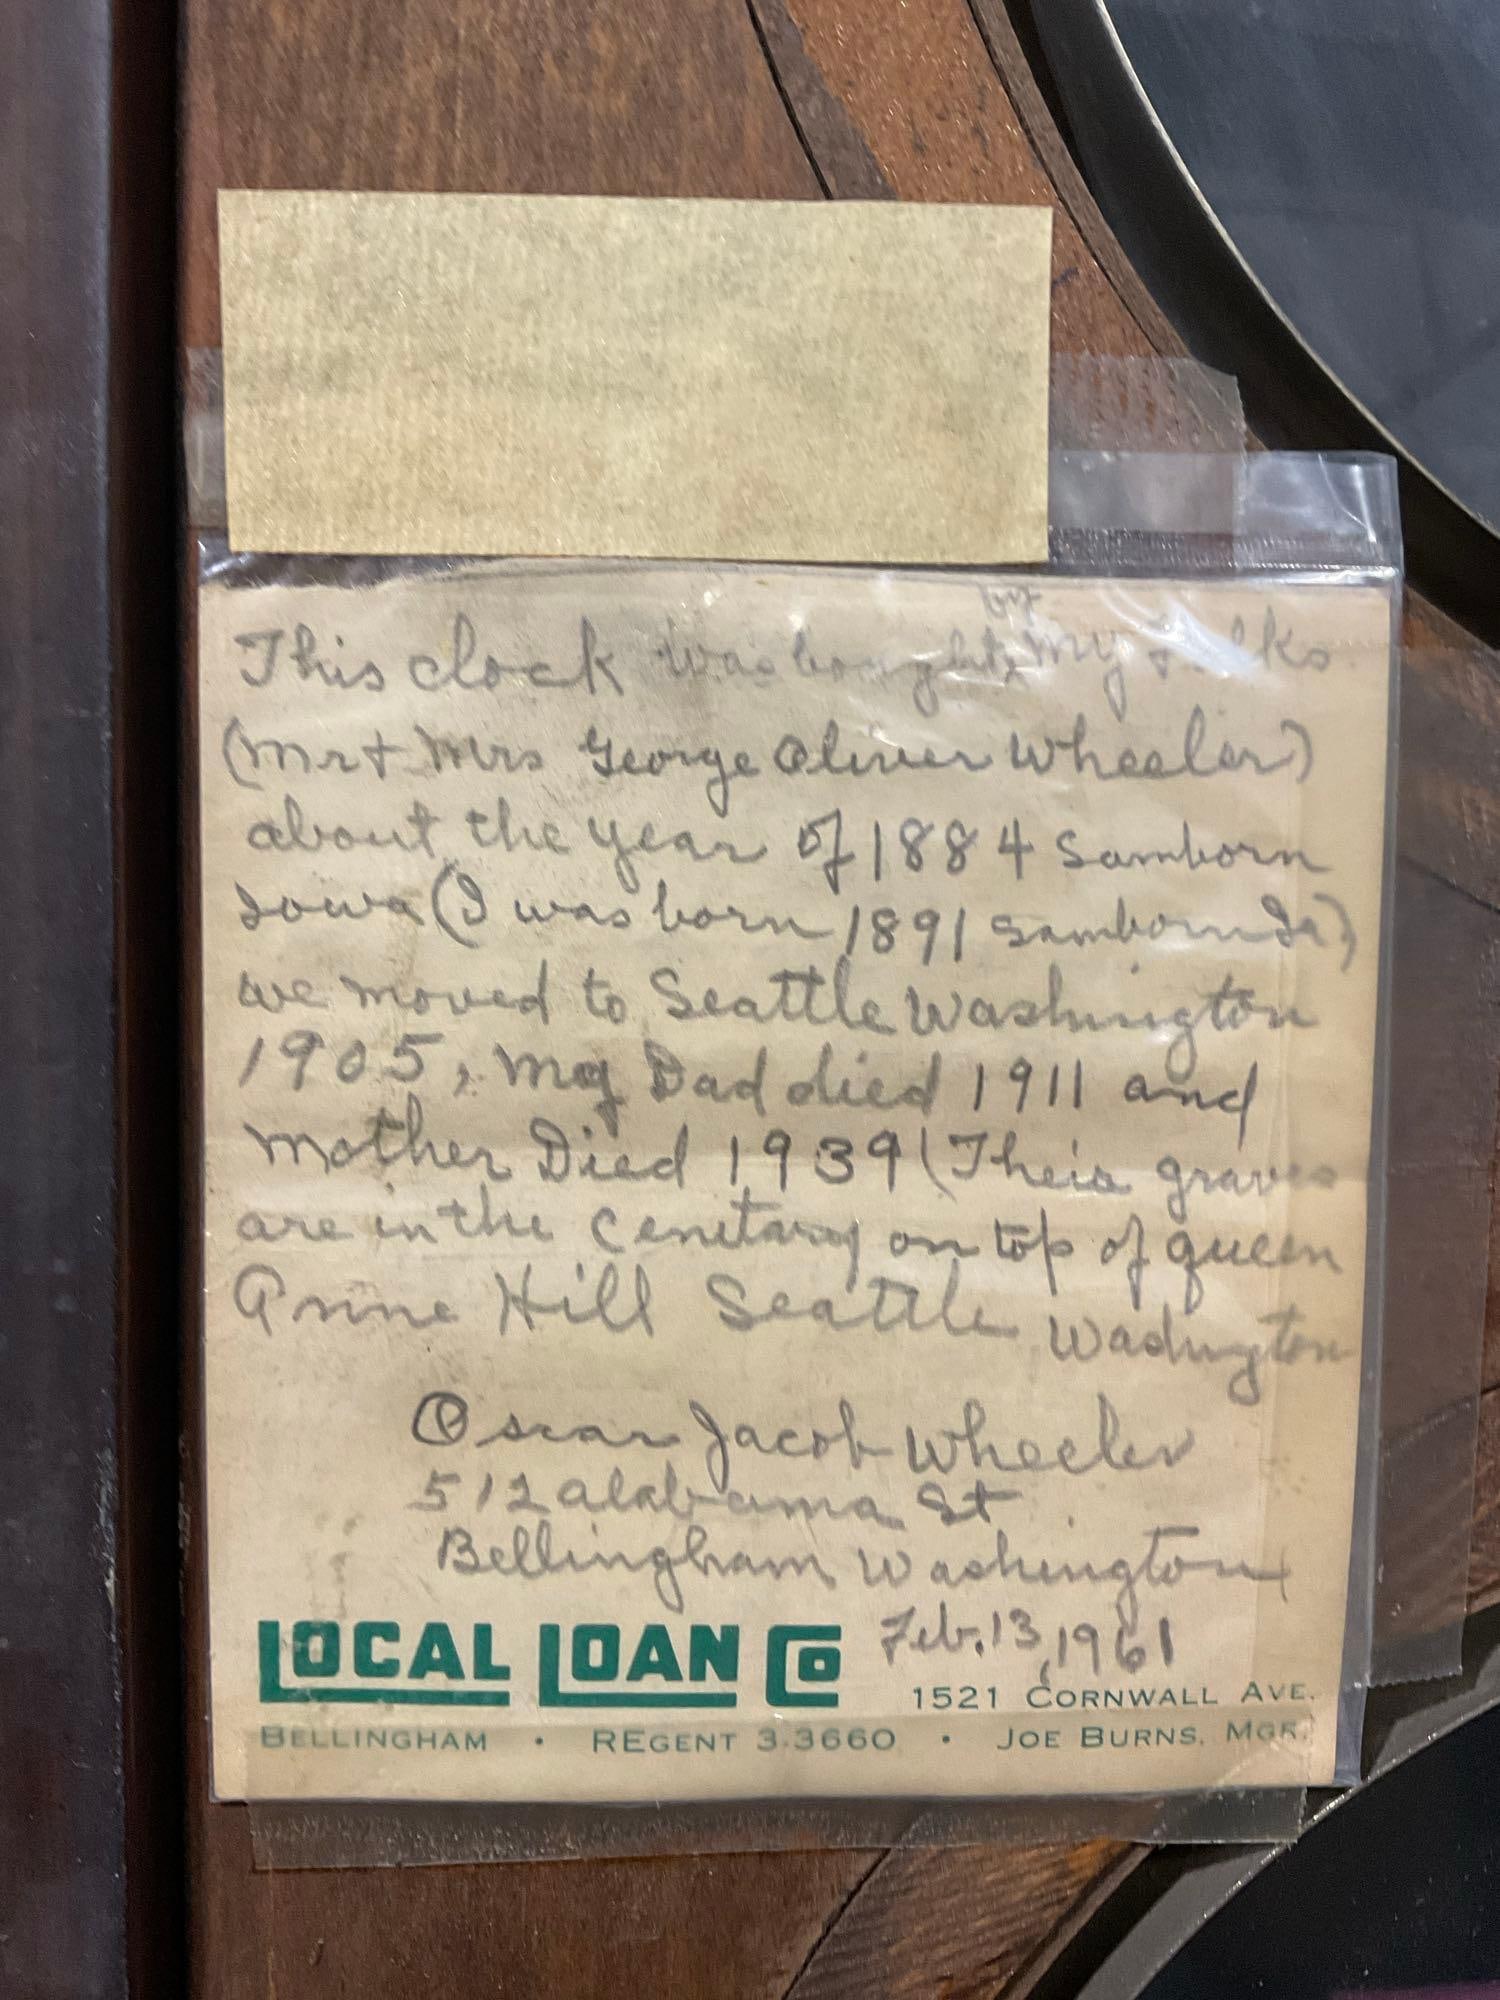 This clock was bought by my folks
(Mr & Mrs George Oliver Wheeler)
about the year of 1884 Samborn
Iowa (I was born 1891 Samborn Ia)
we moved to Seattle Washington
1905, my Dad died 1911 and
Mother Died 1939 (Their graves
are in the cemetary on top of queen
Anne Hill Seattle Washington
Oscar Jacob Wheeler
512 alabama St
Bellingham Washington
Feb. 13, 1961
LOCAL LOAN CO
1521 CORNWALL AVE.
BELLINGHAM • REGENT 3-3660 • JOE BURNS, MGR.